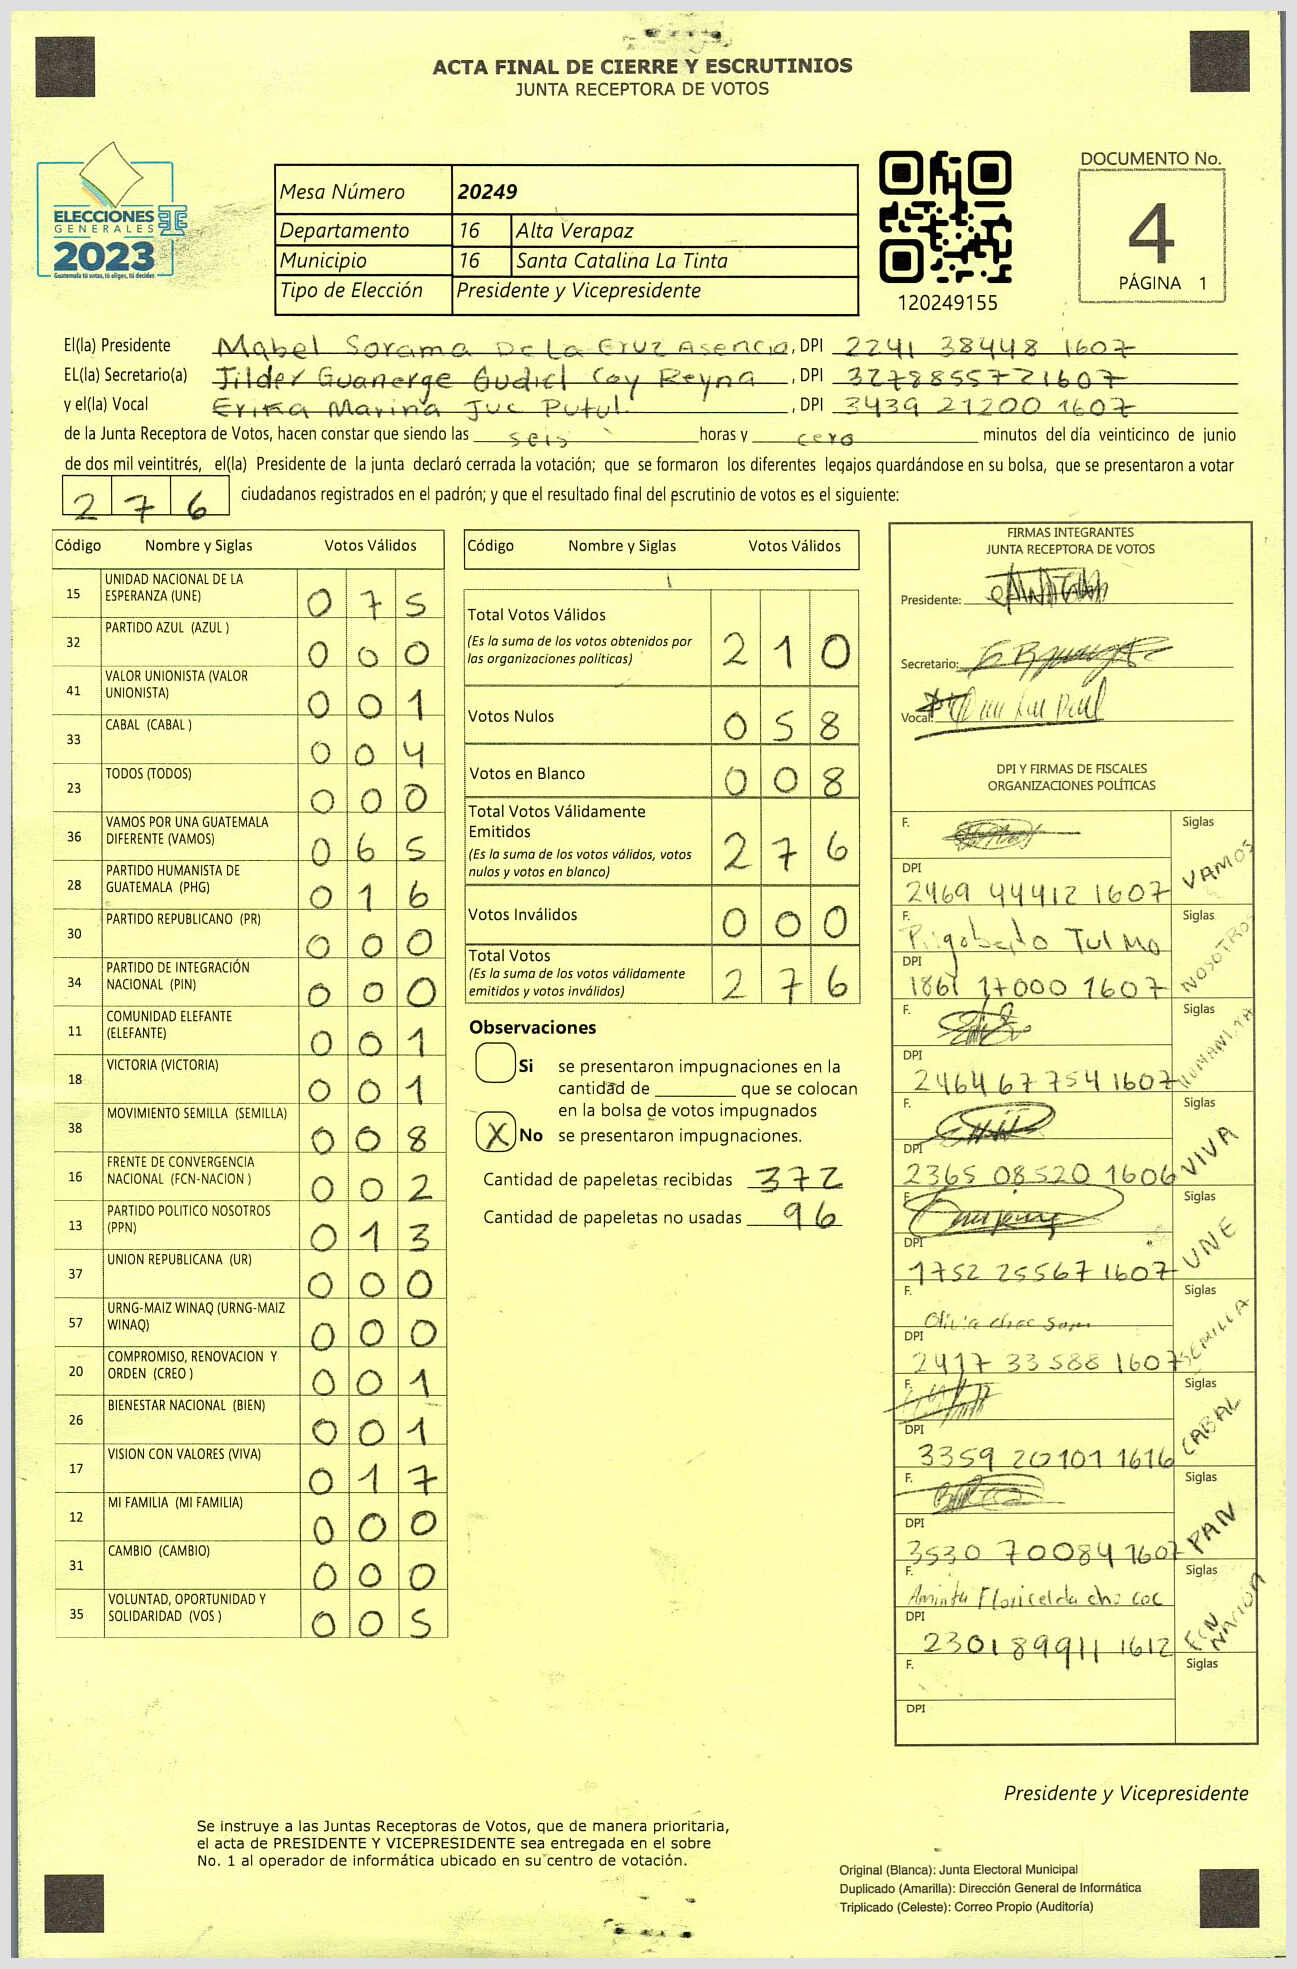 ACTA FINAL DE CIERRE Y ESCRUTINIOS
JUNTA RECEPTORA DE VOTOS
ELECCIONES
GENERALES
2023
Guatemala tú votas, tú eliges, tú decides
Mesa Número 20249
Departamento 16 Alta Verapaz
Municipio 16 Santa Catalina La Tinta
Tipo de Elección Presidente y Vicepresidente
120249155
DOCUMENTO No.
4
PÁGINA 1
El(la) Presidente Mabel Sorama De La Cruz Asencio, DPI 2241 38448 1607
EL(la) Secretario(a) Jilder Guanerge Gudiel Coy Reyna, DPI 3278855721607
y el(la) Vocal Erika Marina Juc Putul, DPI 3439 21200 1607
de la Junta Receptora de Votos, hacen constar que siendo las seis horas y cero minutos del día veinticinco de junio
de dos mil veintitrés, el(la) Presidente de la junta declaró cerrada la votación; que se formaron los diferentes legajos guardándose en su bolsa, que se presentaron a votar
276 ciudadanos registrados en el padrón; y que el resultado final del escrutinio de votos es el siguiente:
Código Nombre y Siglas Votos Válidos
15 UNIDAD NACIONAL DE LA ESPERANZA (UNE) 075
32 PARTIDO AZUL (AZUL ) 000
41 VALOR UNIONISTA (VALOR UNIONISTA) 001
33 CABAL (CABAL ) 004
23 TODOS (TODOS) 000
36 VAMOS POR UNA GUATEMALA DIFERENTE (VAMOS) 065
28 PARTIDO HUMANISTA DE GUATEMALA (PHG) 016
30 PARTIDO REPUBLICANO (PR) 000
34 PARTIDO DE INTEGRACIÓN NACIONAL (PIN) 000
11 COMUNIDAD ELEFANTE (ELEFANTE) 001
18 VICTORIA (VICTORIA) 001
38 MOVIMIENTO SEMILLA (SEMILLA) 008
16 FRENTE DE CONVERGENCIA NACIONAL (FCN-NACION ) 002
13 PARTIDO POLITICO NOSOTROS (PPN) 013
37 UNION REPUBLICANA (UR) 000
57 URNG-MAIZ WINAQ (URNG-MAIZ WINAQ) 000
20 COMPROMISO, RENOVACION Y ORDEN (CREO ) 001
26 BIENESTAR NACIONAL (BIEN) 001
17 VISION CON VALORES (VIVA) 017
12 MI FAMILIA (MI FAMILIA) 000
31 CAMBIO (CAMBIO) 000
35 VOLUNTAD, OPORTUNIDAD Y SOLIDARIDAD (VOS ) 005
Código Nombre y Siglas Votos Válidos
Total Votos Válidos 210
(Es la suma de los votos obtenidos por
las organizaciones políticas)
Votos Nulos 058
Votos en Blanco 008
Total Votos Válidamente
Emitidos 276
(Es la suma de los votos válidos, votos
nulos y votos en blanco)
Votos Inválidos 000
Total Votos 276
(Es la suma de los votos válidamente
emitidos y votos inválidos)
Observaciones
Si se presentaron impugnaciones en la
cantidad de ________ que se colocan
en la bolsa de votos impugnados
X No se presentaron impugnaciones.
Cantidad de papeletas recibidas 372
Cantidad de papeletas no usadas 96
FIRMAS INTEGRANTES
JUNTA RECEPTORA DE VOTOS
Presidente:
Secretario:
Vocal:
DPI Y FIRMAS DE FISCALES
ORGANIZACIONES POLÍTICAS
F. Siglas VAMOS
DPI
2469 44412 1607
F. Rigoberto Tul Mo Siglas NOSOTROS
DPI
1861 17000 1607
F. Siglas HUMANISTA
DPI
2464 67754 1607
F. Siglas VIVA
DPI
2365 08520 1606
F. Siglas UNE
DPI
1752 25567 1607
F. Olivia choc Siglas SEMILLA
DPI
2417 33588 1607
F. Siglas CABAL
DPI
3359 20101 1616
F. Siglas PAN
DPI
3530 70084 1607
F. Aminta Floricelda cho coc Siglas FCN NACION
DPI
2301 89911 1612
F. Siglas
DPI
Presidente y Vicepresidente
Se instruye a las Juntas Receptoras de Votos, que de manera prioritaria,
el acta de PRESIDENTE Y VICEPRESIDENTE sea entregada en el sobre
No. 1 al operador de informática ubicado en su centro de votación.
Original (Blanca): Junta Electoral Municipal
Duplicado (Amarilla): Dirección General de Informática
Triplicado (Celeste): Correo Propio (Auditoría)